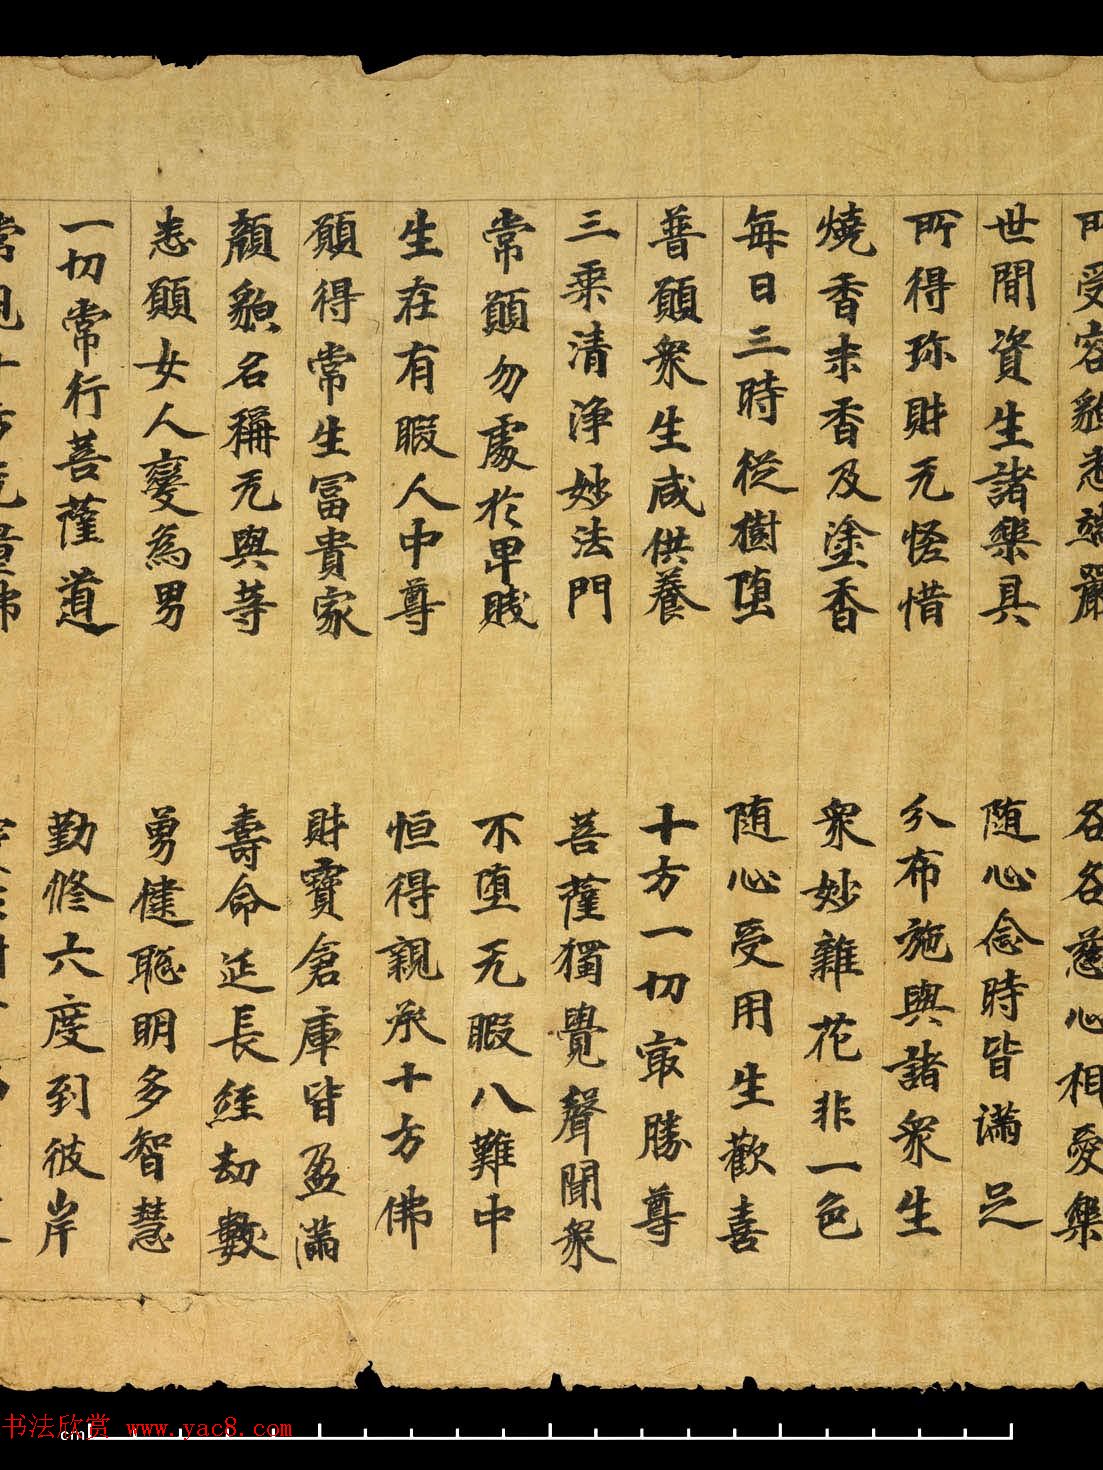 所受容貌悉端嚴 各各慈心相愛樂
世間資生諸樂具 随心念時皆满足
所得珎財无恡惜 分布施與諸衆生
燒香末香及塗香 衆妙雜花非一色
每日三時從樹堕 随心受用生歡喜
普願衆生咸供養 十方一切冣勝尊
三乗清淨妙法門 菩薩獨覺聲聞衆
常願勿處於卑賤 不堕无暇八難中
生在有暇人中尊 恒得親承十方佛
願得常生冨貴家 財寶倉庫皆盈滿
顏貌名稱无與等 壽命延長經劫數
悉願女人變為男 勇健聡明多智慧
一切常行菩薩道 勤修六度到彼岸
书法欣赏 www.yac8.com
cm